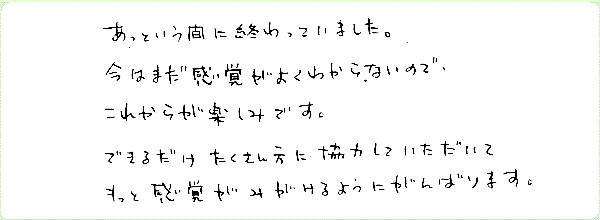 あっという間に終わっていました。
今はまだ感覚がよくわからないので、
これからが楽しみです。
できるだけたくさん方に協力していただいて
もっと感覚がみがけるようにがんばります。